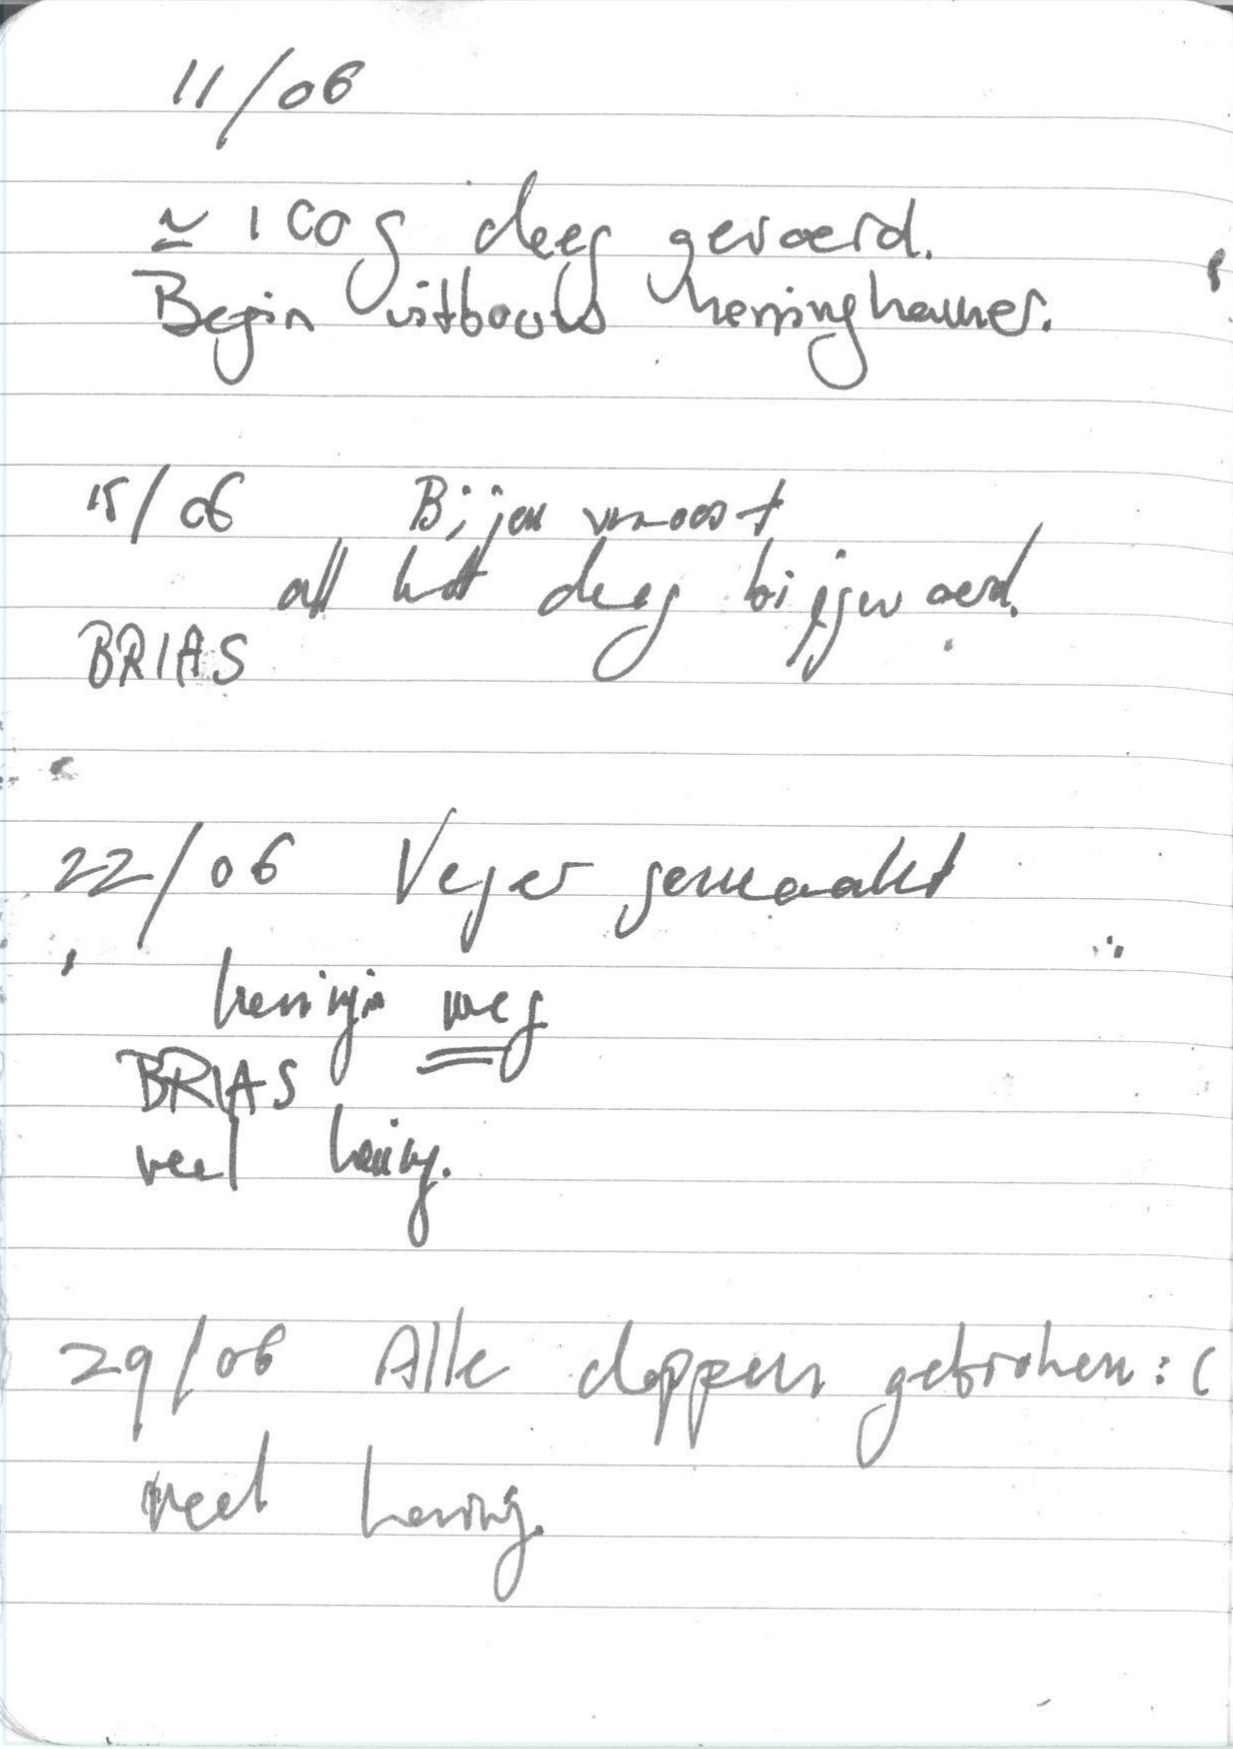 11/06
≃ 100 g deeg gevoerd.
Begin uitbouw honinghamer.
15/06 Bijen
all het deeg bijgevoerd.
BRIAS
22/06 Veger gemaakt
weg
BRIAS
veel honing.
29/06 Alle doppen gebroken :(
veel honing.